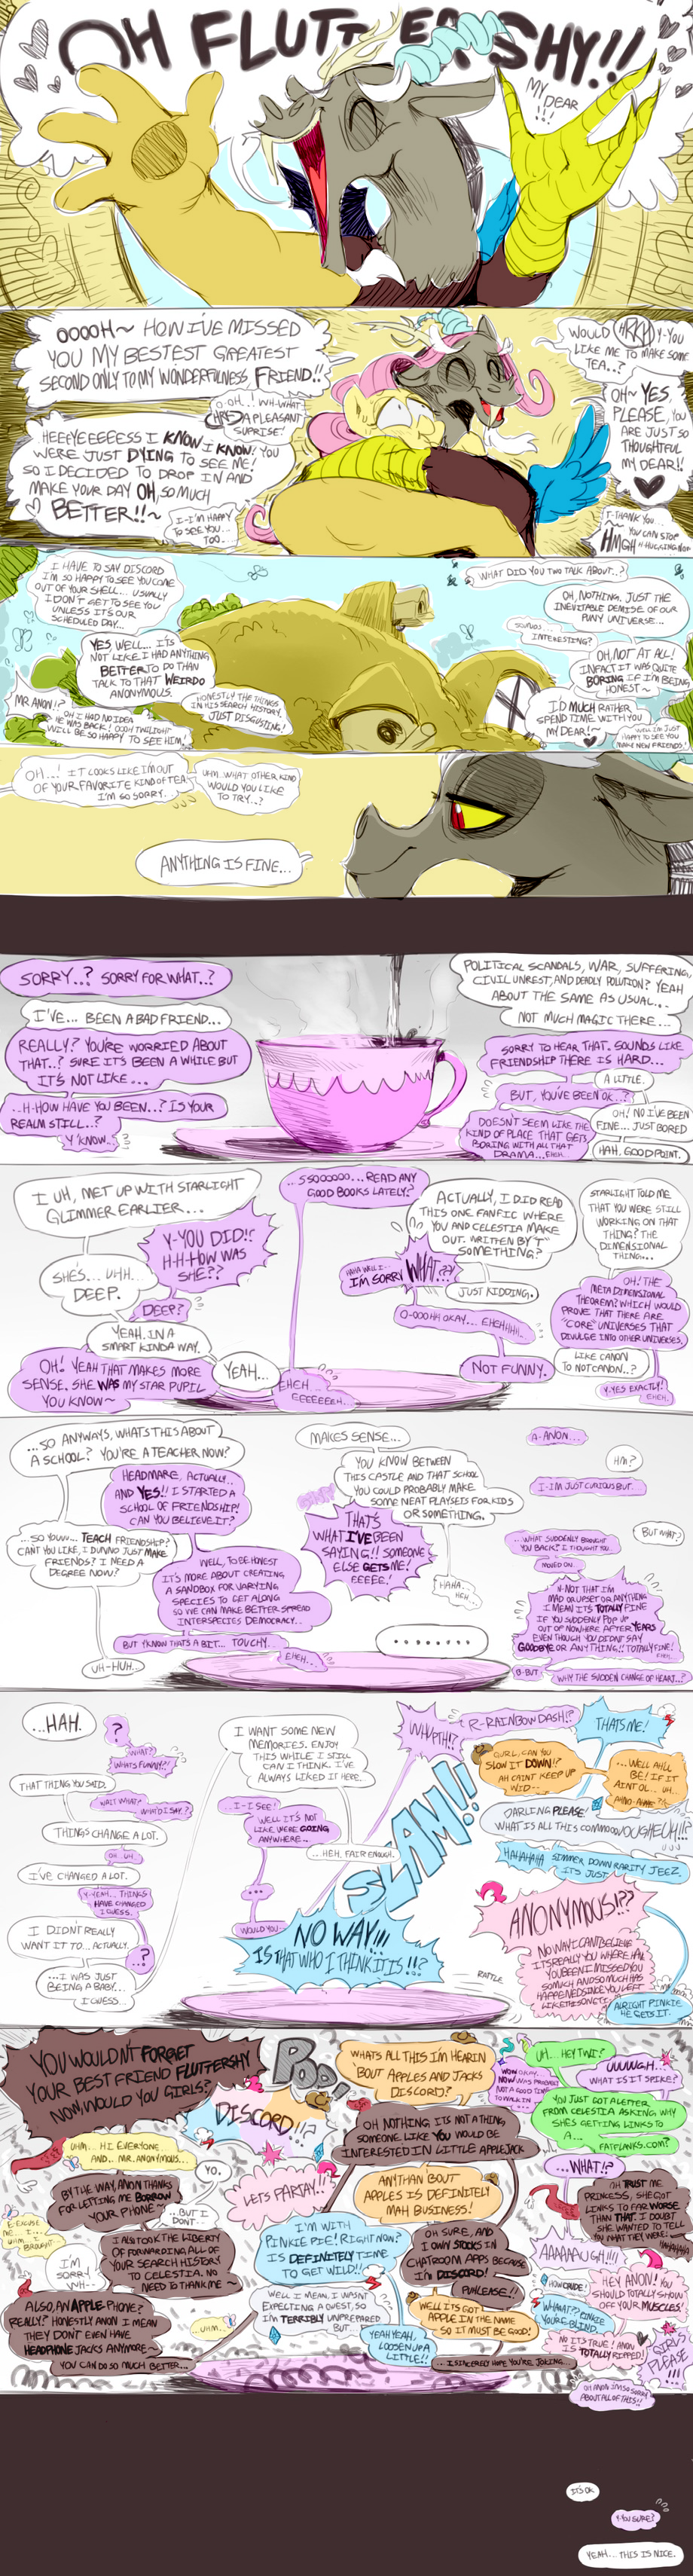 OH FLUTTERSHY!!
MY
DEAR
!!!
OOOOH~ HOW I'VE MISSED
YOU MY BESTEST GREATEST
SECOND ONLY TO MY WONDERFULNESS, FRIEND!!
O-OH..! WH-WHAT
A PLEASANT
SUPRISE!
HEEEYEEEEESS I KNOW I KNOW! YOU
WERE JUST DYING TO SEE ME!
SO I DECIDED TO DROP IN AND
MAKE YOUR DAY OH, SO MUCH
BETTER!!~
I-I'M HAPPY
TO SEE YOU...
TOO...
WOULD HRKK Y-YOU
LIKE ME TO MAKE SOME
TEA..?
OH~ YES,
PLEASE, YOU
ARE JUST SO
THOUGHTFUL
MY DEAR!!
T-THANK YOU...
YOU CAN STOP
HMGH HUGGING NOW
I HAVE TO SAY DISCORD
I'M SO HAPPY TO SEE YOU COME
OUT OF YOUR SHELL... USUALLY
I DON'T GET TO SEE YOU
UNLESS IT'S OUR
SCHEDULED DAY...
YES, WELL... IT'S
NOT LIKE I HAD ANYTHING
BETTER TO DO THAN
TALK TO THAT WEIRDO
ANONYMOUS.
HONESTLY THE THINGS
IN HIS SEARCH HISTORY.
JUST DISGUSTING!
MR. ANON!?
OH I HAD NO IDEA
HE WAS BACK! OOOH TWILIGHT
WILL BE SO HAPPY TO SEE HIM!
WHAT DID YOU TWO TALK ABOUT..?
OH, NOTHING. JUST THE
INEVITABLE DEMISE OF OUR
PUNY UNIVERSE...
SOUNDS...
INTERESTING?
OH, NOT AT ALL!
INFACT IT WAS QUITE
BORING IF I'M BEING
HONEST~
I'D MUCH RATHER
SPEND TIME WITH YOU
MY DEAR!~
WELL I'M JUST
HAPPY TO SEE YOU
MAKE NEW FRIENDS!
OH...! IT LOOKS LIKE I'M OUT
OF YOUR FAVORITE KIND OF TEA
I'M SO SORRY...
UHM... WHAT OTHER KIND
WOULD YOU LIKE
TO TRY..?
ANYTHING IS FINE...
SORRY..? SORRY FOR WHAT..?
I'VE... BEEN A BAD FRIEND...
REALLY? YOU'RE WORRIED ABOUT
THAT..? SURE IT'S BEEN A WHILE BUT
IT'S NOT LIKE...
..H-HOW HAVE YOU BEEN..? IS YOUR
REALM STILL..?
Y'KNOW...
POLITICAL SCANDALS, WAR, SUFFERING,
CIVIL UNREST, AND DEADLY POLUTION? YEAH
ABOUT THE SAME AS USUAL...
NOT MUCH MAGIC THERE...
SORRY TO HEAR THAT. SOUNDS LIKE
FRIENDSHIP THERE IS HARD...
A LITTLE.
BUT, YOU'VE BEEN OK..?
OH! NO I'VE BEEN
FINE... JUST BORED
DOESN'T SEEM LIKE THE
KIND OF PLACE THAT GETS
BORING WITH ALL THAT
DRAMA... EHEH...
HAH, GOOD POINT.
I UH, MET UP WITH STARLIGHT
GLIMMER EARLIER...
Y-YOU DID!!
H-H-HOW WAS
SHE??
SHE'S... UHH..
DEEP.
DEEP?
YEAH. IN A
SMART KINDA WAY.
OH! YEAH THAT MAKES MORE
SENSE. SHE WAS MY STAR PUPIL
YOU KNOW~
YEAH...
..SSOOOOOO... READ ANY
GOOD BOOKS LATELY?
ACTUALLY, I DID READ
THIS ONE FANFIC WHERE
YOU AND CELESTIA MAKE
OUT. WRITTEN BY "T"
SOMETHING?
HAHA WELL I-
I'M SORRY WHAT??
JUST KIDDING.
O-OOOHH OKAY... EHEHHHH..
NOT FUNNY.
EHEH...
EEEEEEEH..
STARLIGHT TOLD ME
THAT YOU WERE STILL
WORKING ON THAT
THING? THE
DIMENSIONAL
THING...
OH! THE
META DIMENSIONAL
THEOREM? WHICH WOULD
PROVE THAT THERE ARE
"CORE" UNIVERSES THAT
DIVULGE INTO OTHER UNIVERSES.
LIKE CANON
TO NOT CANON..?
Y-YES EXACTLY!
EHEH.
...SO ANYWAYS, WHATS THIS ABOUT
A SCHOOL? YOU'RE A TEACHER NOW?
HEADMARE, ACTUALLY...
AND YES!! I STARTED A
SCHOOL OF FRIENDSHIP!
CAN YOU BELIEVE IT?
...SO YOUU... TEACH FRIENDSHIP?
CAN'T YOU LIKE, I DUNNO JUST MAKE
FRIENDS? I NEED A
DEGREE NOW?
WELL, TO BE HONEST
IT'S MORE ABOUT CREATING
A SANDBOX FOR VARYING
SPECIES TO GET ALONG
SO WE CAN MAKE BETTER SPREAD
INTERSPECIES DEMOCRACY..
BUT Y'KNOW THATS A BIT... TOUCHY..
EHEH..
UH-HUH..
MAKES SENSE...
YOU KNOW BETWEEN
THIS CASTLE AND THAT SCHOOL
YOU COULD PROBABLY MAKE
SOME NEAT PLAYSETS FOR KIDS
OR SOMETHING.
GASP!
THAT'S
WHAT I'VE BEEN
SAYING!! SOMEONE
ELSE GETS ME!
EEEEE!
HAHA..
HEH..
........
A-ANON...
HM?
I-I-IM JUST CURIOUS BUT...
BUT WHAT?
...WHAT SUDDENLY BROUGHT
YOU BACK? I THOUGHT YOU...
MOVED ON..
N-NOT THAT I'M
MAD OR UPSET OR ANYTHING
I MEAN IT'S TOTALLY FINE
IF YOU SUDDENLY POP UP
OUT OF NOWHERE AFTER YEARS
EVEN THOUGH YOU DIDN'T SAY
GOODBYE OR ANYTHING!! TOTALLY FINE!
EHEH..
B-BUT
WHY THE SUDDEN CHANGE OF HEART...?
...HAH.
?
WHAT?
WHATS FUNNY!?
THAT THING YOU SAID.
WAIT WHAT?
WHAT'D I SAY..?
THINGS CHANGE A LOT.
OH...UH...
I'VE CHANGED A LOT.
Y-YEAH... THINGS
HAVE CHANGED
I GUESS..
I DIDN'T REALLY
WANT IT TO... ACTUALLY.
..?
...I WAS JUST
BEING A BABY...
I GUESS..
I WANT SOME NEW
MEMORIES. ENJOY
THIS WHILE I STILL
CAN I THINK. I'VE
ALWAYS LIKED IT HERE.
..I-I SEE!
WELL IT'S NOT
LIKE WE'RE GOING
ANYWHERE..
...HEH, FAIR ENOUGH.
...
WOULD YOU-
SLAM!!
NO WAY!!!
IS THAT WHO I THINK IT IS!!?
RATTLE
R-RAINBOW DASH!?
THATS ME!
GURL, CAN YOU
SLOW IT DOWN!?
AH CAINT KEEP UP
WID...
...WELL AH'LL
BE! IF IT
AINT OL'... UH..
DARLING PLEASE!
WHAT IS ALL THIS
HAHAHAHA SIMMER DOWN RARITY JEEZ.
IT'S JUST..
ANONYMOUS!??
NO WAY I CANT BELIEVE
IT'S REALLY YOU WHERE HAVE
YOU BEEN I MISSED YOU
SO MUCH AND SO MUCH HAS
HAPPENED SINCE YOU LEFT
ALRIGHT PINKIE
HE GETS IT.
YOU WOULDN'T FORGET
YOUR BEST FRIEND FLUTTERSHY
NOW, WOULD YOU GIRLS?
POP!
DISCORD!!?
UHM... HI EVERYONE..
AND... MR. ANONYMOUS...
YO.
BY THE WAY, ANON THANKS
FOR LETTING ME BORROW
YOUR PHONE~
..BUT I
DON'T..
E-EXCUSE
ME.. I...
UHM...
BROUGHT..
I ALSO TOOK THE LIBERTY
OF FORWARDING ALL OF
YOUR SEARCH HISTORY
TO CELESTIA. NO
NEED TO THANK ME~
I'M
SORRY
WH--
ALSO, AN APPLE-PHONE?
REALLY? HONESTLY ANON I MEAN
THEY DON'T EVEN HAVE
HEADPHONE JACKS ANYMORE
YOU CAN DO SO MUCH BETTER...
..UHM..
LETS PARTAY!!
I'M WITH
PINKIE PIE! RIGHT NOW?
IS DEFINITELY TIME
TO GET WILD!!
WELL I MEAN, I WASN'T
EXPECTING A GUEST, SO
I'M TERRIBLY UNPREPARED
BUT...
YEAH YEAH,
LOOSEN UP A
LITTLE!!
WHATS ALL THIS I'M HEARIN
'BOUT APPLES AND JACKS
DISCORD!?
OH NOTHING. ITS NOT A THING
SOMEONE LIKE YOU WOULD BE
INTERESTED IN LITTLE APPLEJACK
ANYTHAN 'BOUT
APPLES IS DEFINITELY
MAH BUSINESS!
OH SURE, AND
I OWN STOCKS IN
CHATROOM APPS BECAUSE
I'M DISCORD!
PUHLEASE!!
WELL ITS GOT
APPLE IN THE NAME
SO IT MUST BE GOOD!
...I SINCERELY HOPE YOU'RE JOKING...
WOW OKAY.
NOW WAS PROBABLY
NOT A GOOD TIME
TO WALK IN...
UH... HEY TWI?
UUUUGH...
WHAT IS IT SPIKE?
YOU JUST GOT A LETTER
FROM CELESTIA ASKING WHY
SHES GETTING LINKS TO
A...
FATFLANKS.COM?
...WHAT!?
OH TRUST ME
PRINCESS, SHE GOT
LINKS TO FAR WORSE
THAN THAT. I DOUBT
SHE WANTED TO TELL
YOU WHAT THEY WERE..
HAHAHAHA
AAAAAAUGH!!!!
HOW CRUDE!
HEY ANON! YOU
SHOULD TOTALLY SHOW
OFF YOUR MUSCLES!
WHAAT?? PINKIE
YOU'RE BLIND.
NO ITS TRUE! ANON
IS TOTALLY RIPPED!
GIRLS
PLEASE
!!!
OH ANON I'M SO SORRY
ABOUT ALL OF THIS!!
IT'S OK
Y-YOU SURE?
YEAH... THIS IS NICE.